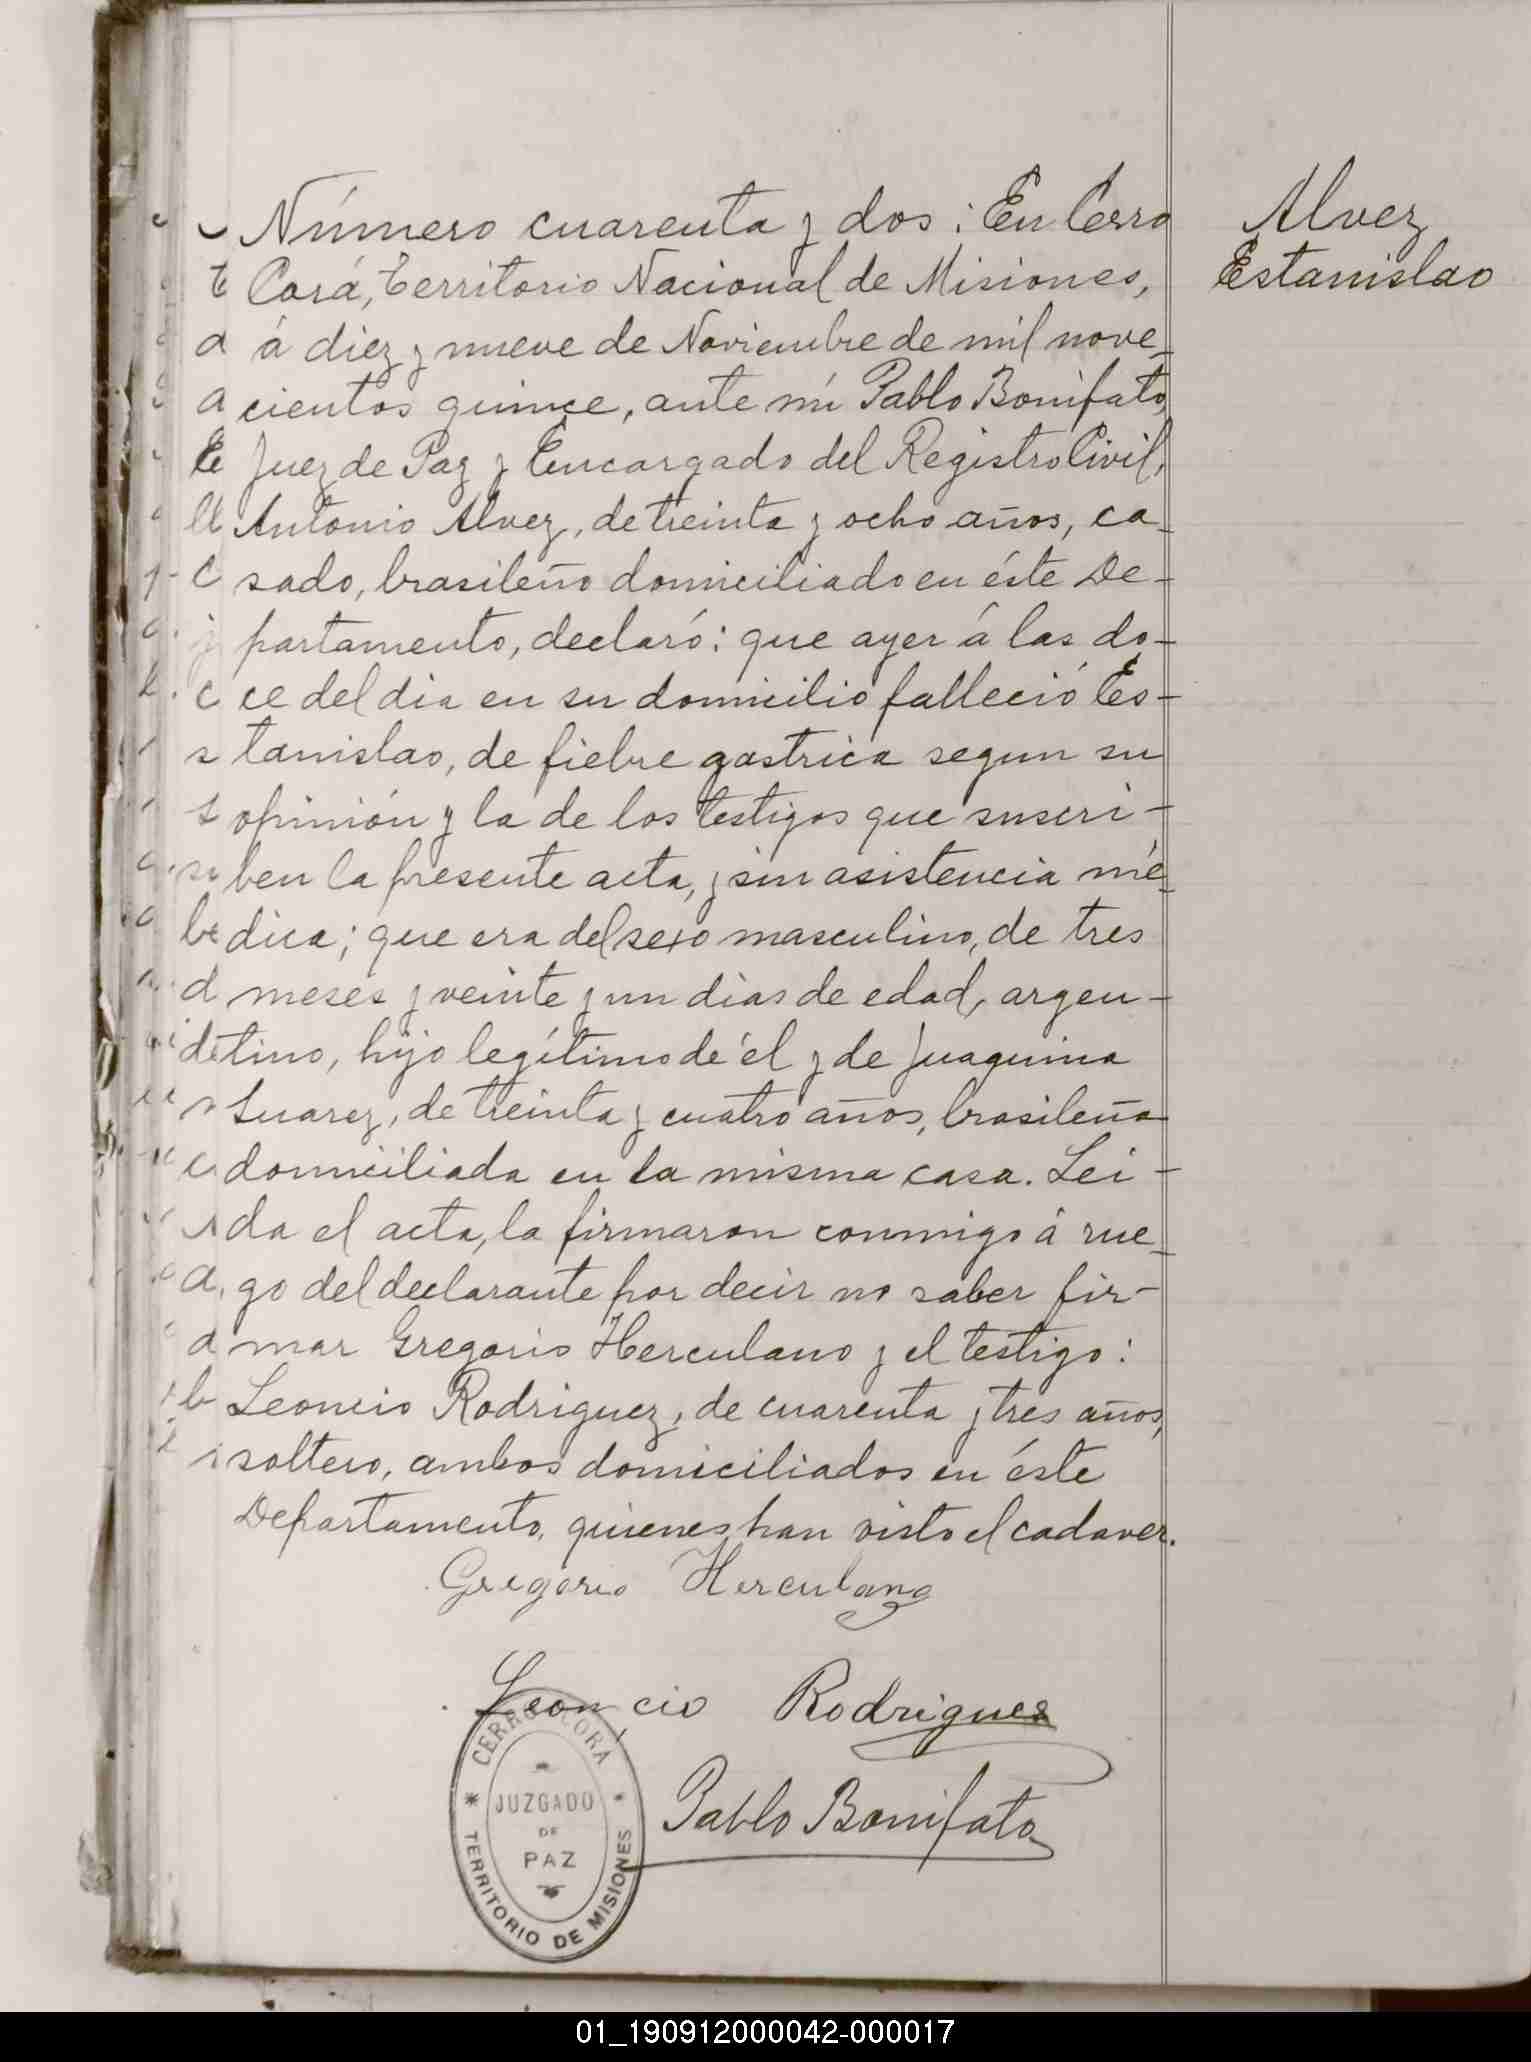 Número cuarenta y dos: En Cerro
Corá, territorio Nacional de Misiones,
á diez y nueve de Noviembre de mil nove-
cientos quince, ante mí Pablo Bonifato,
Juez de Paz y Encargado del Registro Civil,
Antonio Alvez, de treinta y ocho años, ca-
sado, brasileño domiciliado en éste De-
partamento, declaró: que ayer á las do-
ce del dia en su domicilio falleció Es-
tanislao, de fiebre gastrica segun su
opinión y la de los testigos que suscri-
ben la presente acta, y sin asistencia mé-
dica; que era del sexo masculino, de tres
meses y veinte y un dias de edad, argen-
tino, hijo legítimo de él y de Juaquina
Suarez, de treinta y cuatro años, brasileña
domiciliada en la misma casa. Lei-
da el acta, la firmaron conmigo á rue-
go del declarante por decir no saber fir-
mar Gregorio Herculano y el testigo:
Leoncio Rodriguez, de cuarenta y tres años,
soltero, ambos domiciliados en éste
Departamento, quienes han visto el cadaver.
Alvez
Estanislao
Gregorio Herculano
Leoncio Rodrigues
Pablo Bonifato
CERRO CORA
JUZGADO
DE
PAZ
TERRITORIO DE MISIONES
01_190912000042-000017